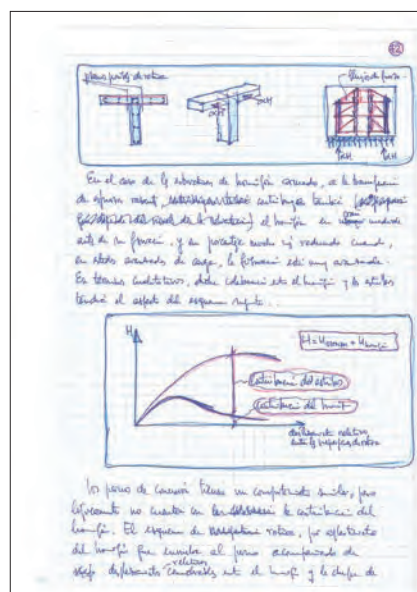 42
planos posibles de rotura
flujo de fuerza
αH
αH
αH
αH
En el caso de las estructuras de hormigón armado, a la transferencia
de esfuerzo rasante, contribuye también
el hormigón en gran medida
antes de su fisuración, y en porcentaje mucho más reducido cuando,
en estados avanzados de carga, la fisuración está muy avanzada.
En términos cualitativos, dicha colaboración entre el hormigón y los estribos
tendrá el aspecto del esquema siguiente.
H
H = Hestribos + Hhormigón
contribución del estribos
contribución del hormigón
deslizamiento relativo
entre las superficies de rotura
Los pernos de conexión tienen un comportamiento similar, pero
no cuentan con la contribución del
hormigón. El esquema de rotura, por aplastamiento
del hormigón que envuelve al perno acompañado de
desplazamientos relativos entre el hormigón y la chapa de